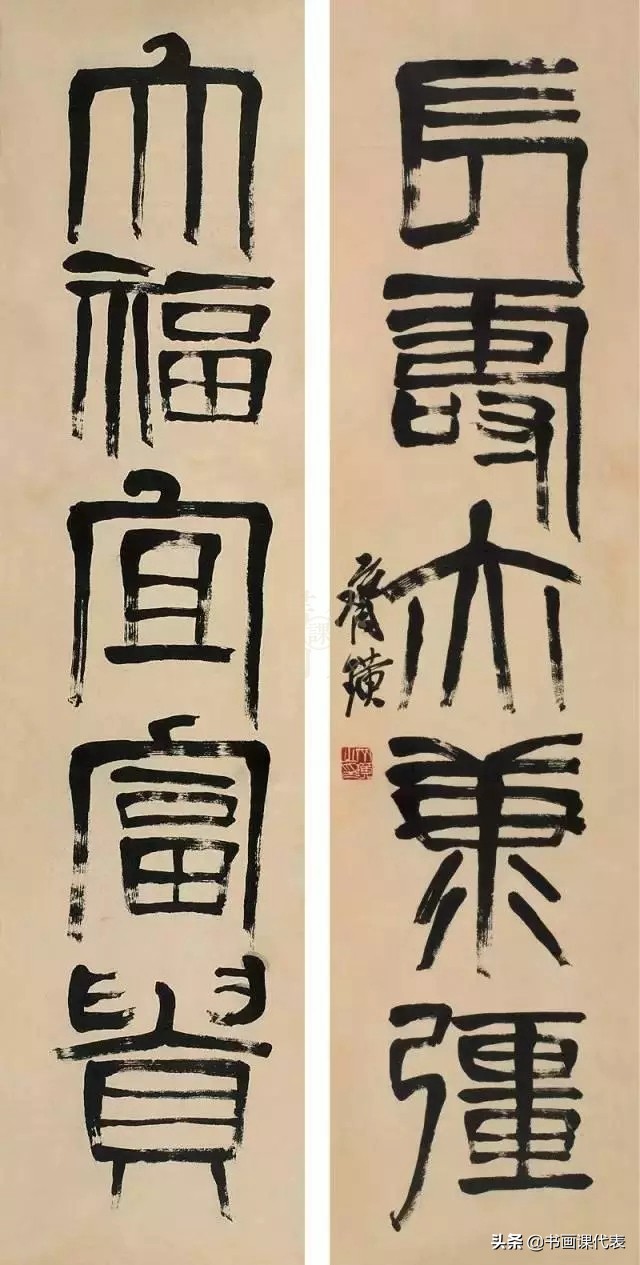 長壽亦康彊
齊璜
大福宜富貴
头条 @书画课代表